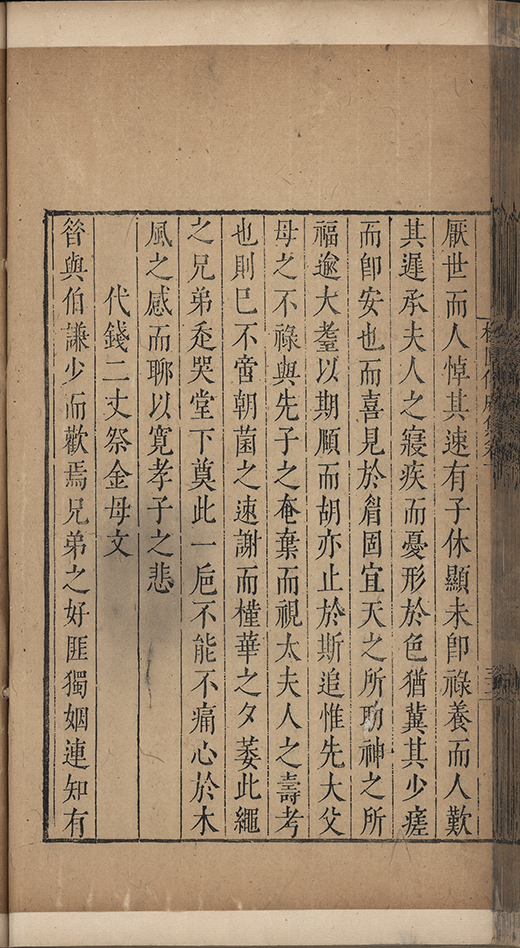 厭世而人悼其速有子休顯未卽祿養而人歎
其遲承夫人之寢疾而憂形於色猶冀其少瘥
而卽安也而喜見於眉固宜天之所助神之所
福逾大耋以期頤而胡亦止於斯追惟先大父
母之不祿與先子之奄棄而視太夫人之壽考
也則已不啻朝菌之速謝而槿華之夕萎此繩
之兄弟走哭堂下奠此一巵不能不痛心於木
風之感而聊以寛孝子之悲
代錢二丈祭金母文
昝與伯謙少而歡焉兄弟之好匪獨姻連知有